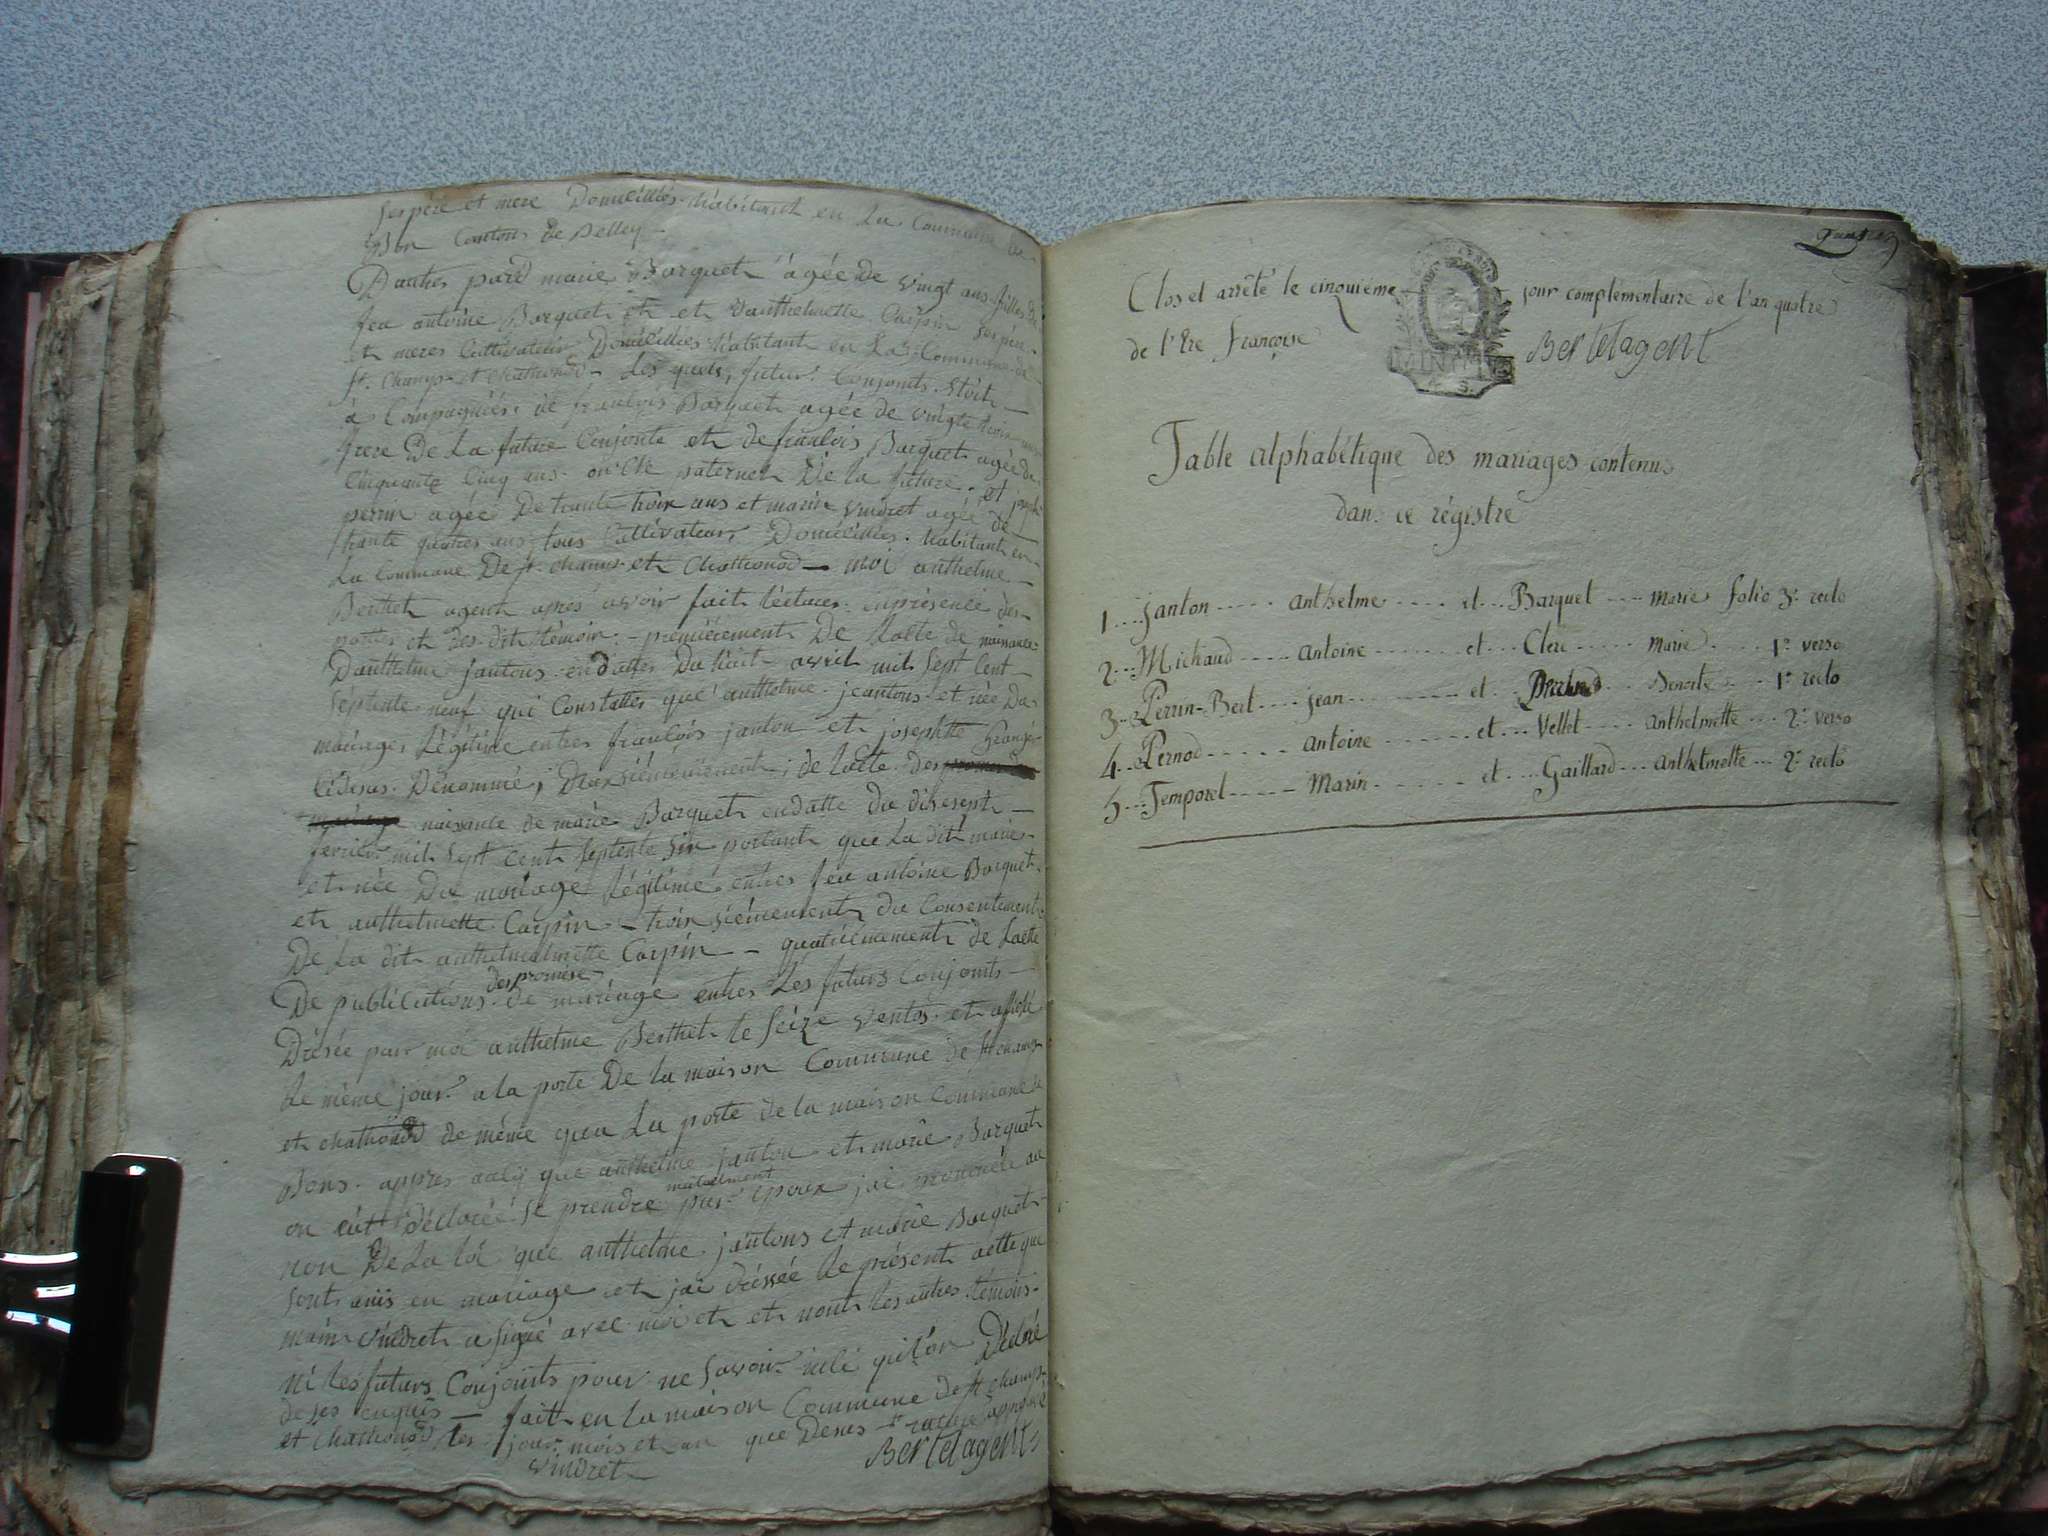 ses père et mere Domicilliés habitant en La Commune de
Bon Cantons de Belley
Dautres pard marie Barquet âgée De vingt ans filles de
feu antoine Barquet et et Danthelmette Carpin ses père
et meres Cultivateur Domicilliés habitant en La Commune de
st. Champ et Chathonod Les quels futur Conjoints étoit
a Compagniés de francois Barquet agée de vingte trois ans
frere De La future Conjointe et de francois Barquet agée de
Cinquante Cinq ans oncle paternel De la future et joseph
perrin agée De trante trois ans et marin vindret agée de
trante quatres ans tous Cultivateurs Domicilliés habitant en
La Commune De st. Champ et Chathonod moi anthelme
Berthet agent apres avoir fait lecture en présence des
parties et des dit témoin premièrement De Lacte de naisance
Danthelme jantons en datte Du huit avril mil Sept Cent
Septente neuf qui Constattes que anthelme jeantons et née Du
mariage Légitime entres francois janton et josephtte
Cidesus Dénommé, Deuxsiémement de Lacte
naisante de marie Barquet en datte du dixesept
fevrier mil Sept Cent Septente Six portant que La dit marie
et née Du mariage Légitime entres feu antoine Barquet
et anthelmette Carpin troixsiémement du Consentement
De La dit anthelmette Carpin quatriémement de Lacte
des promise
De publications de mariage entres Les futurs Conjoints
Drésée par moi anthelme Berthet le Seize ventos et affiché
Le même jour a la porte De La maison Commune de st champ
et chathonod de même qua La porte de la maison Commune de
Bons appres que anthelme janton et marie Barquet
mutuelment
on déclarée se prendre pur époux jai prononcée au
non De La loi que anthelme jantons et marie Barquet
sont unis en mariage et jai dréssée Le présent acte que
marin vindret a signé avec moi et et nont les autres témoins
ni les futurs Conjoints pour ne savoir quil on Déclaré
de ses enquis fait en la maison Commune de st champ
et Chathonod les jour mois et an que Desus
vindret Bertetagent
Clos et arrêté le cinquième jour complémentaire de l'an quatre
de l'Ere françoise Bertetagent
Table alphabétique des mariages contenus
dans ce régistre
1 .... Janton ..... anthelme ..... et ... Barquet .... marie folio 3e recto
2 ... Michaud ..... antoine ..... et ... Clerc ..... marie ..... 1er verso
3 ... Perrin-Bert .... jean ..... et ... .... Benoite .... 1er recto
4 ... Pernod ..... antoine ..... et ... Vellet .... anthelmette ... 2e verso
5 ... Temporel ..... Marin ..... et ... Gaillard ... anthelmette ... 2e recto